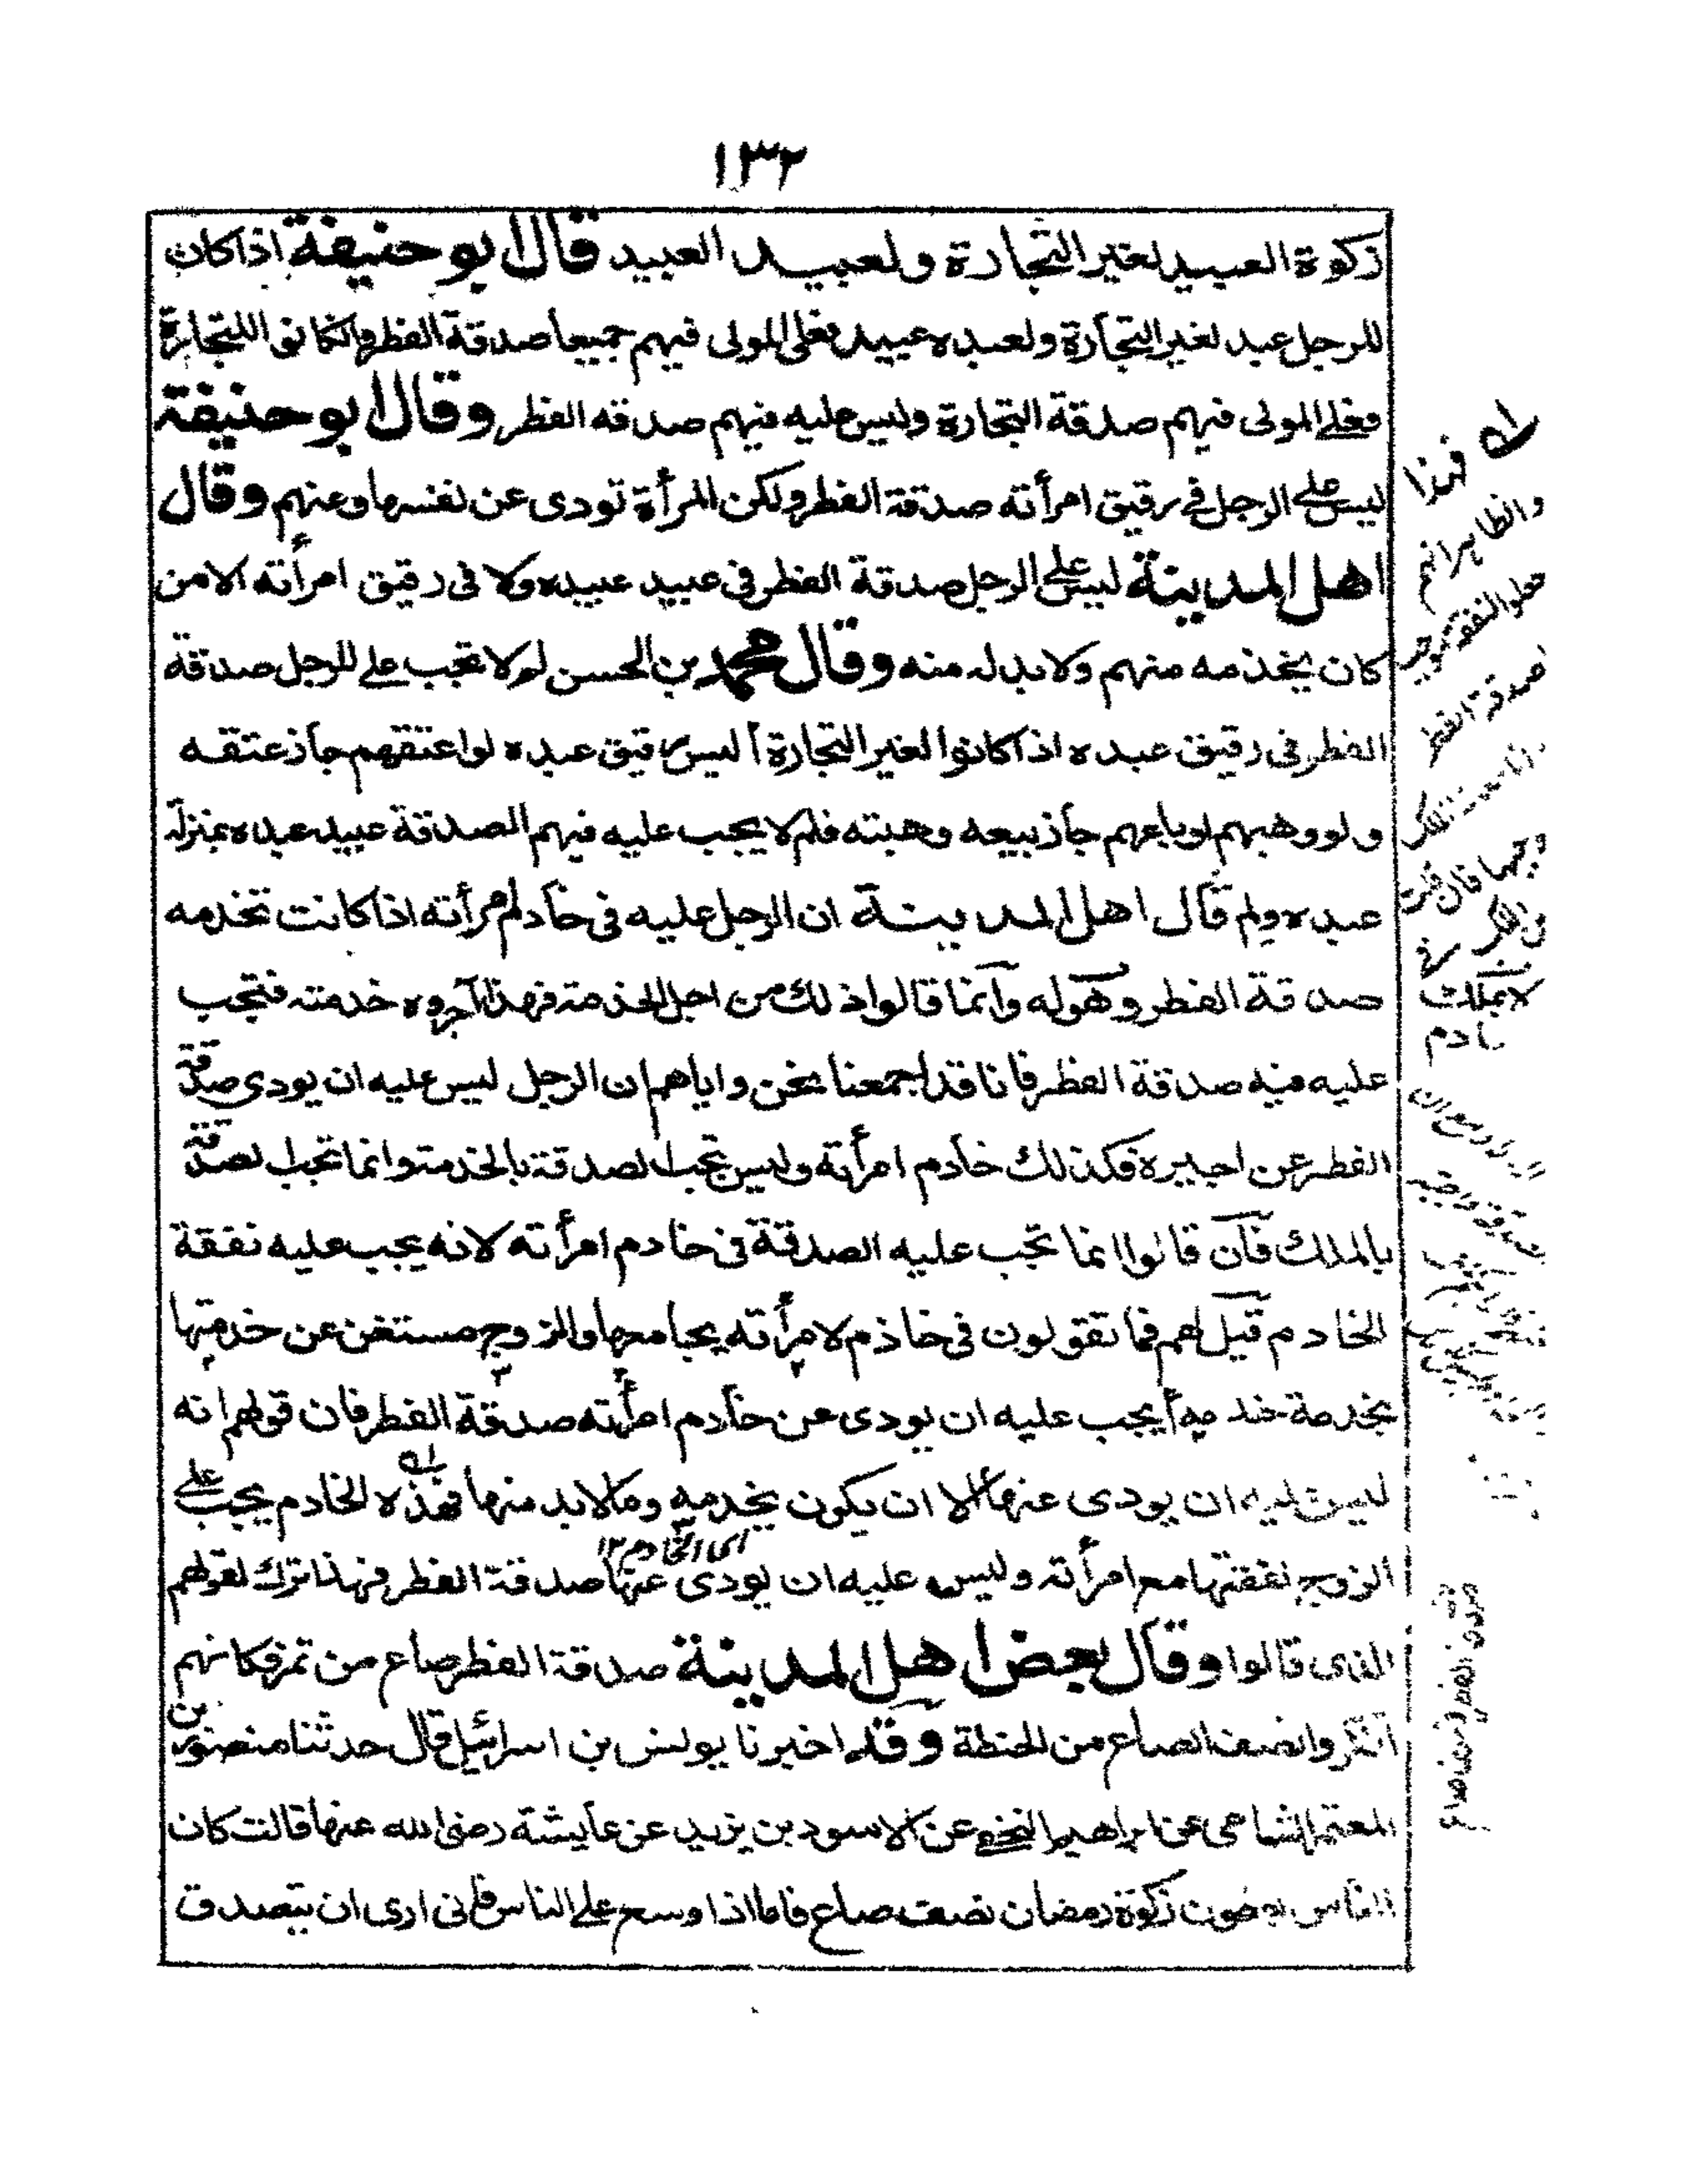 ١٣٢
زكوة العبيد لغير التجارة ولعبيد العبيد قال ابو حنيفة اذا كان
للرجل عبد لغير التجارة ولعبده عبيد فعلى المولى فيهم جميعا صدقة الفطر وان كانوا للتجارة
فعلى المولى فيهم صدقة التجارة وليس عليه فيهم صدقه الفطر وقال ابو حنيفة
ليس على الرجل في رقيق امرأته صدقة الفطر ولكن المرأة تودى عن نفسها وعنهم وقال
اهل المدينة ليس على الرجل صدقة الفطر فى عبيد عبيده ولا فى رقيق امرأته الا من
كان يخدمه منهم ولا بد له منه وقال محمد بن الحسن لم لا تجب على للرجل صدقة
الفطر فى رقيق عبده اذا كانوا لغير التجارة أليس رقيق عبده لو اعتقهم جاز عتقه
ولو وهبهم او باعهم جاز بيعه وهبته فلم لا يجب عليه فيهم الصدقة عبيد عبده بمنزلة
عبده ولم قال اهل المدينة ان الرجل عليه فى خادم امرأته اذا كانت تخدمه
صدقة الفطر وهوله وانما قالوا ذلك من اجل الخدمة فهذا آجروه خدمته فتجب
عليه فيه صدقة الفطر فانا قد اجمعنا نحن واياهم ان الرجل ليس عليه ان يودى صدقة
الفطر عن اجيره فكذلك خادم امرأته وليس تجب الصدقة بالخدمة وانما تجب الصدقة
بالملك فان قالوا انما تجب عليه الصدقة فى خادم امرأته لانه يجب عليه نفقة
الخادم قيل لهم فما تقولون فى خادم لامرأته يحبا معها والزوج مستغن عن خدمتها
بخدمة خدمه أيجب عليه ان يودى عن خادم امرأته صدقة الفطر فان قولهم انه
ليس عليه ان يودى عنها الا ان يكون يخدمه وما لا بد منها فهذه الخادم يجب على
اى الخادم ١٢
الزوج نفقتها مع امرأته وليس عليه ان يودى عنها صدقة الفطر فهذا ترك لقولهم
الذى قالوا وقال بعض اهل المدينة صدقة الفطر صاع من تمر فكانهم
انكروا نصف الصاع من الحنطة وقد اخبرنا يونس بن اسرائيل قال حدثنا منصور بن
المعتمر الشامى عن ابراهيم النخعى عن الاسود بن يزيد عن عايشة رضى الله عنها قالت كان
الناس يعطون زكوة رمضان نصف صاع فاما اذا وسع على الناس فانى ارى ان يتصدق
فهذا
والظاهر انهم
صدقة الفطر
لا يملك
خادم